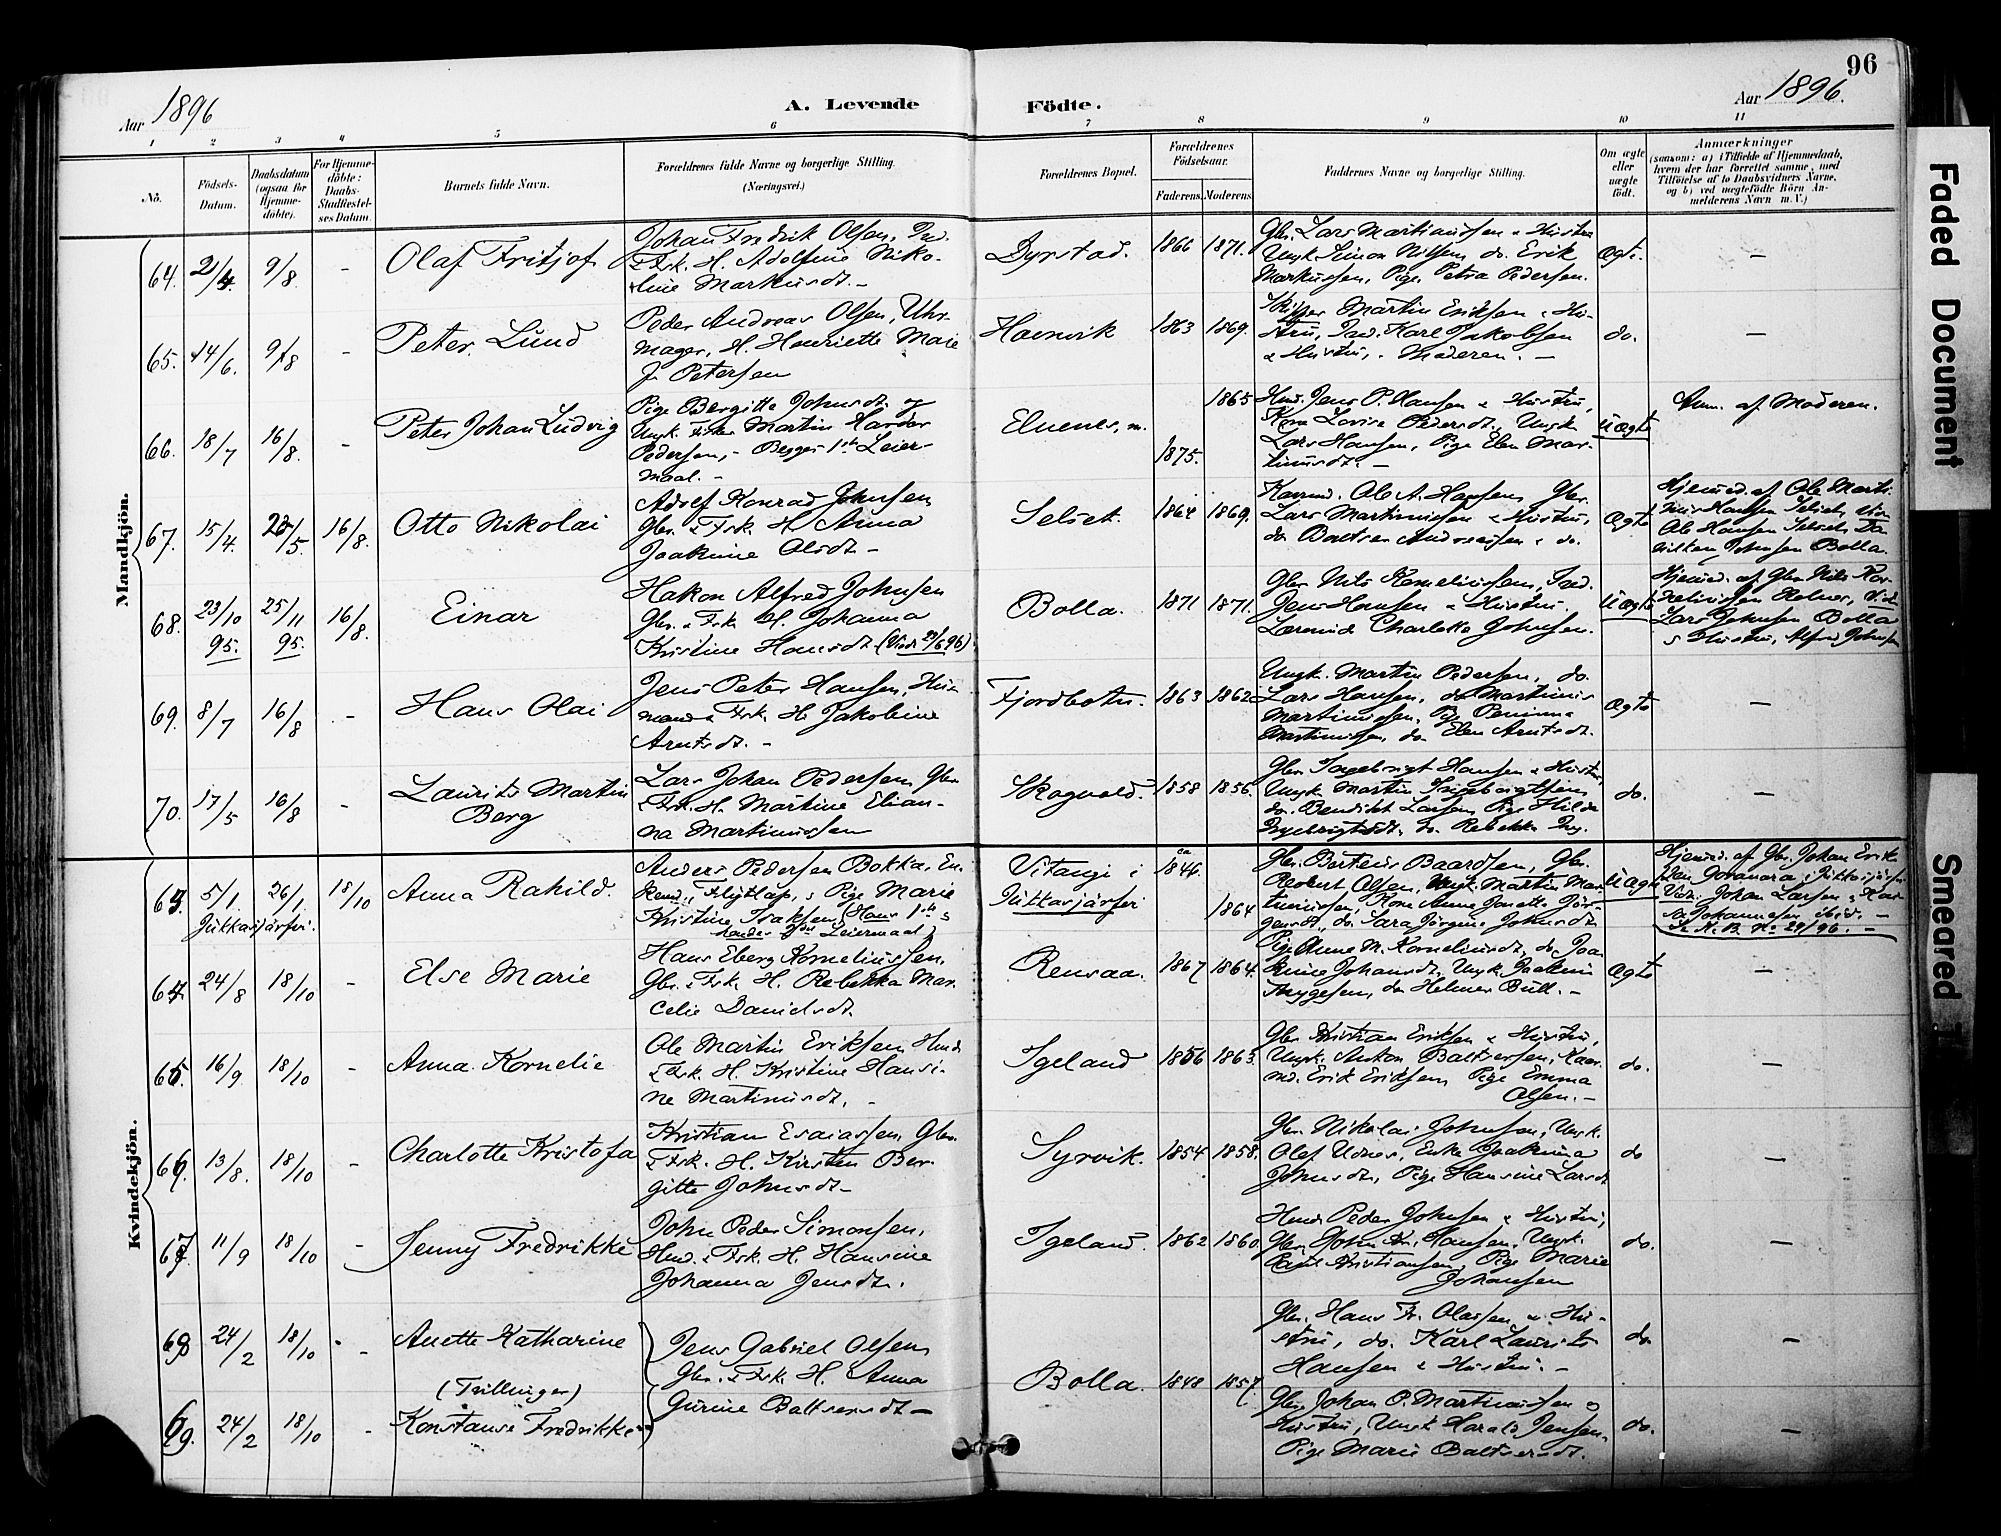 96
Aar 1896
A. Levende
Födte.
Aar 1896.
1 2 3 4 5 6 7 8 9 10 11
No.
Födsels-
Datum.
Daabsdatum
(ogsaa for
Hjemme-
döbte).
For Hjemme-
döbte:
Daabs-
Stadfæstel-
ses Datum.
Barnets fulde Navn.
Forældrenes fulde Navne og borgerlige Stilling.
(Næringsvei.)
Forældrenes Bopæl.
Forældrenes
Födselsaar.
Faderens. Moderens.
Faddernes Navn og borgerlige Stilling.
Om ægte
eller
uægte
födt.
Anmærkninger
(saasom: a) i Tilfælde af Hjemmedaab,
hvem der har forrettet samme, med
Tilföielse af to Daabsvidners Navne,
og b) ved uægtefödte Börn An-
melderens Navn m. V.)
Mandkjön.
64. 21/4. 9/8 - Olaf Fritjof
Johan Fredrik Olsen, Ind.
& Fsk. H. Adolfine Niko-
line Markusdt. -
Dyrstad. 1866 1871.
Gbr. Lars Martinussen & Hustru
Ungk. Simon Nilsen, do. Erik
Markussen, Pige Petra Pedersen.
Ægte. -
65. 14/6. 9/8 - Peter Lund
Peder Andreas Olsen, Uhr-
mager, H. Henriette Marie
f. Petersen
Havnvik 1863 1869.
Skipper Martin Eriksen & Hu-
stru, Ind. Karl Jakobsen
& Hustru, Moderen. -
do. -
66. 18/7 16/8. - Peter Johan Ludvig
Pige Bergitte Johnsdt. og
Ungk. Fisker Martin Harder
Pedersen, - Begges 1ste Leier-
maal. -
Elvenes, m. 1875. 1865
Hmd. Jens P. Hansen & Hustru,
Kone Lovise Pedersdt., Ungk.
Lars Hansen, Pige Elen Mar-
tinusdt. -
Uægte
Anm. af Moderen.
67. 15/4. 25/5 16/8. Otto Nikolai
Adolf Konrad Johnsen
Gbr. & Fsk. H. Anna
Joakime Olsdt -
Selset. 1864 1869.
Kaarmd. Ole A. Hansen, Gbr.
Lars Martinussen & Hustru,
do Baltser Andreassen & do.
Ægte
Hjemmed. af Ole Marti-
nus Hansen Selset, Vidn.
Ole Hansen Selset,
Johnsen Bolla.
68. 23/10 95. 25/11 95. 16/8. Einar
Hakon Alfred Johnsen
Gbr. & Fsk. H. Johanna
Kristine Hansdt (Viede 29/6 96)
Bolla. 1871 1871.
Gbr. Nils Kornelinssen, Ind.
Jens Hansen & Hustru.
Lærerinde Charlotte Johnsen.
Uægte
Hjemmed. af Gbr. Nils Kor-
nelinssen Helnes, Vidn.
Lars Johnsen Bolla
& Hustru, Alfred Johnsen
69. 8/7 16/8 - Hans Olai
Jens Peter Hansen, Hus-
mand & Fsk. H. Jakobine
Arntsdt. -
Fjordbotn. 1863 1862
Ungk. Martin Pedersen, do.
Lars Hansen, do Martinus
Martinussen, Pg. Penima
Martinussen, do Elen Arntsdt.
Ægte -
70. 17/5 16/8 - Laurits Martin
Berg
Lars Johan Pedersen, Gbr.
& Fsk. H. Martine Elian-
na Martinussen
Skogvold. 1858 1856.
Gbr. Ingebrigt Hansen & Hustru,
Ungk. Martin Ingebrigtsen
do. Bendikt Larsen, Pige Hilda
Ingebrigtsdt., do. Rebekka Ing.
do. -
Kvindekjön.
63. 5/1. 26/1. 18/10 Anna Rahild.
Jukkasjärfvi.
Anders Pedersen Bokka, En-
kemd., Flytlap, & Pige Marie
Kristine Isaksen (Hans 1ste,
hendes 2det Leiermaal)
Vitangi i
Jukkasjärfvi
ca 1846. 1864
Gbr. Berteus Baardsen, Gbr.
Robert Olsen, Ungk. Martin Mar-
tinussen, Kone Anne Janette Jör-
gensdt., do. Sara Jörgine Johnsdt.
Uægte
Hjemmed. af Gbr. Johan Erik-
sen i Jukkasjärfvi
Vidn. Johan Larsen
Johannesen ibid. -
Se N. B. No 29/96. -
64. 24/8 18/10 - Else Marie
Hans Eberg Kornelinssen,
Gbr. & Fsk. H. Rebekka Mar-
celie Danielsdt.
Rensaa. 1867 1864.
Pige Anne M. Kornelinsdt, do Joa-
kime Johansdt. Ungk. Joakim
Thygesen, do Helmer Bull. -
Ægte -
65. 16/9 18/10 - Anna Kornelie
Ole Martin Eriksen, Hmd.
& Fsk. H. Kristine Hansi-
ne Martinusdt. -
Igeland 1856 1863.
Gbr. Kristian Eriksen & Hustru,
Ungk. Anton Baltsersen, Kaar-
md. Erik Eriksen, Pige Emma
Olsen. -
do. -
66. 13/8. 18/10 - Charlotte Kristofa
Kristian Esaiassen, Gbr.
& Fsk. H. Kirsten Ber-
gitte Johnsdt -
Syrvik. 1854 1858.
Gbr. Nikolai Johnsen, Ungk.
Olaf Udnes, Enke Joakima
Johnsdt., Pige Hansine Larsdt
do -
67. 11/9 18/10 - Jenny Fredrikke
John Peder Simonsen,
Hmd. & Fsk. H. Hansine
Johanna Jensdt.
Igeland. 1862 1860.
Hmd. Peder Johnsen & Hustru,
Gbr. John Kr. Hansen, Ungk.
Paul Kristiansen, Pige Marie
Johansen
do. -
68 24/2 18/10 - Anette Katharine
(Tvillinger)
69. 24/2 18/10 - Konstanse Fredrikke
Jens Gabriel Olsen
Gbr. & Fsk. H. Anna
Gurine Baltsersdt -
Bolla. 1848 1857.
Gbr. Hans Fr. Olaisen & Hu-
stru, do. Karl Laurits
Hansen & Hustru. -
do -
Gbr. Johan O. Martinussen &
Hustru, Ungk Harald Jensen
Pige Marie Baltsersdt.
do. -
Faded Document
Smeared